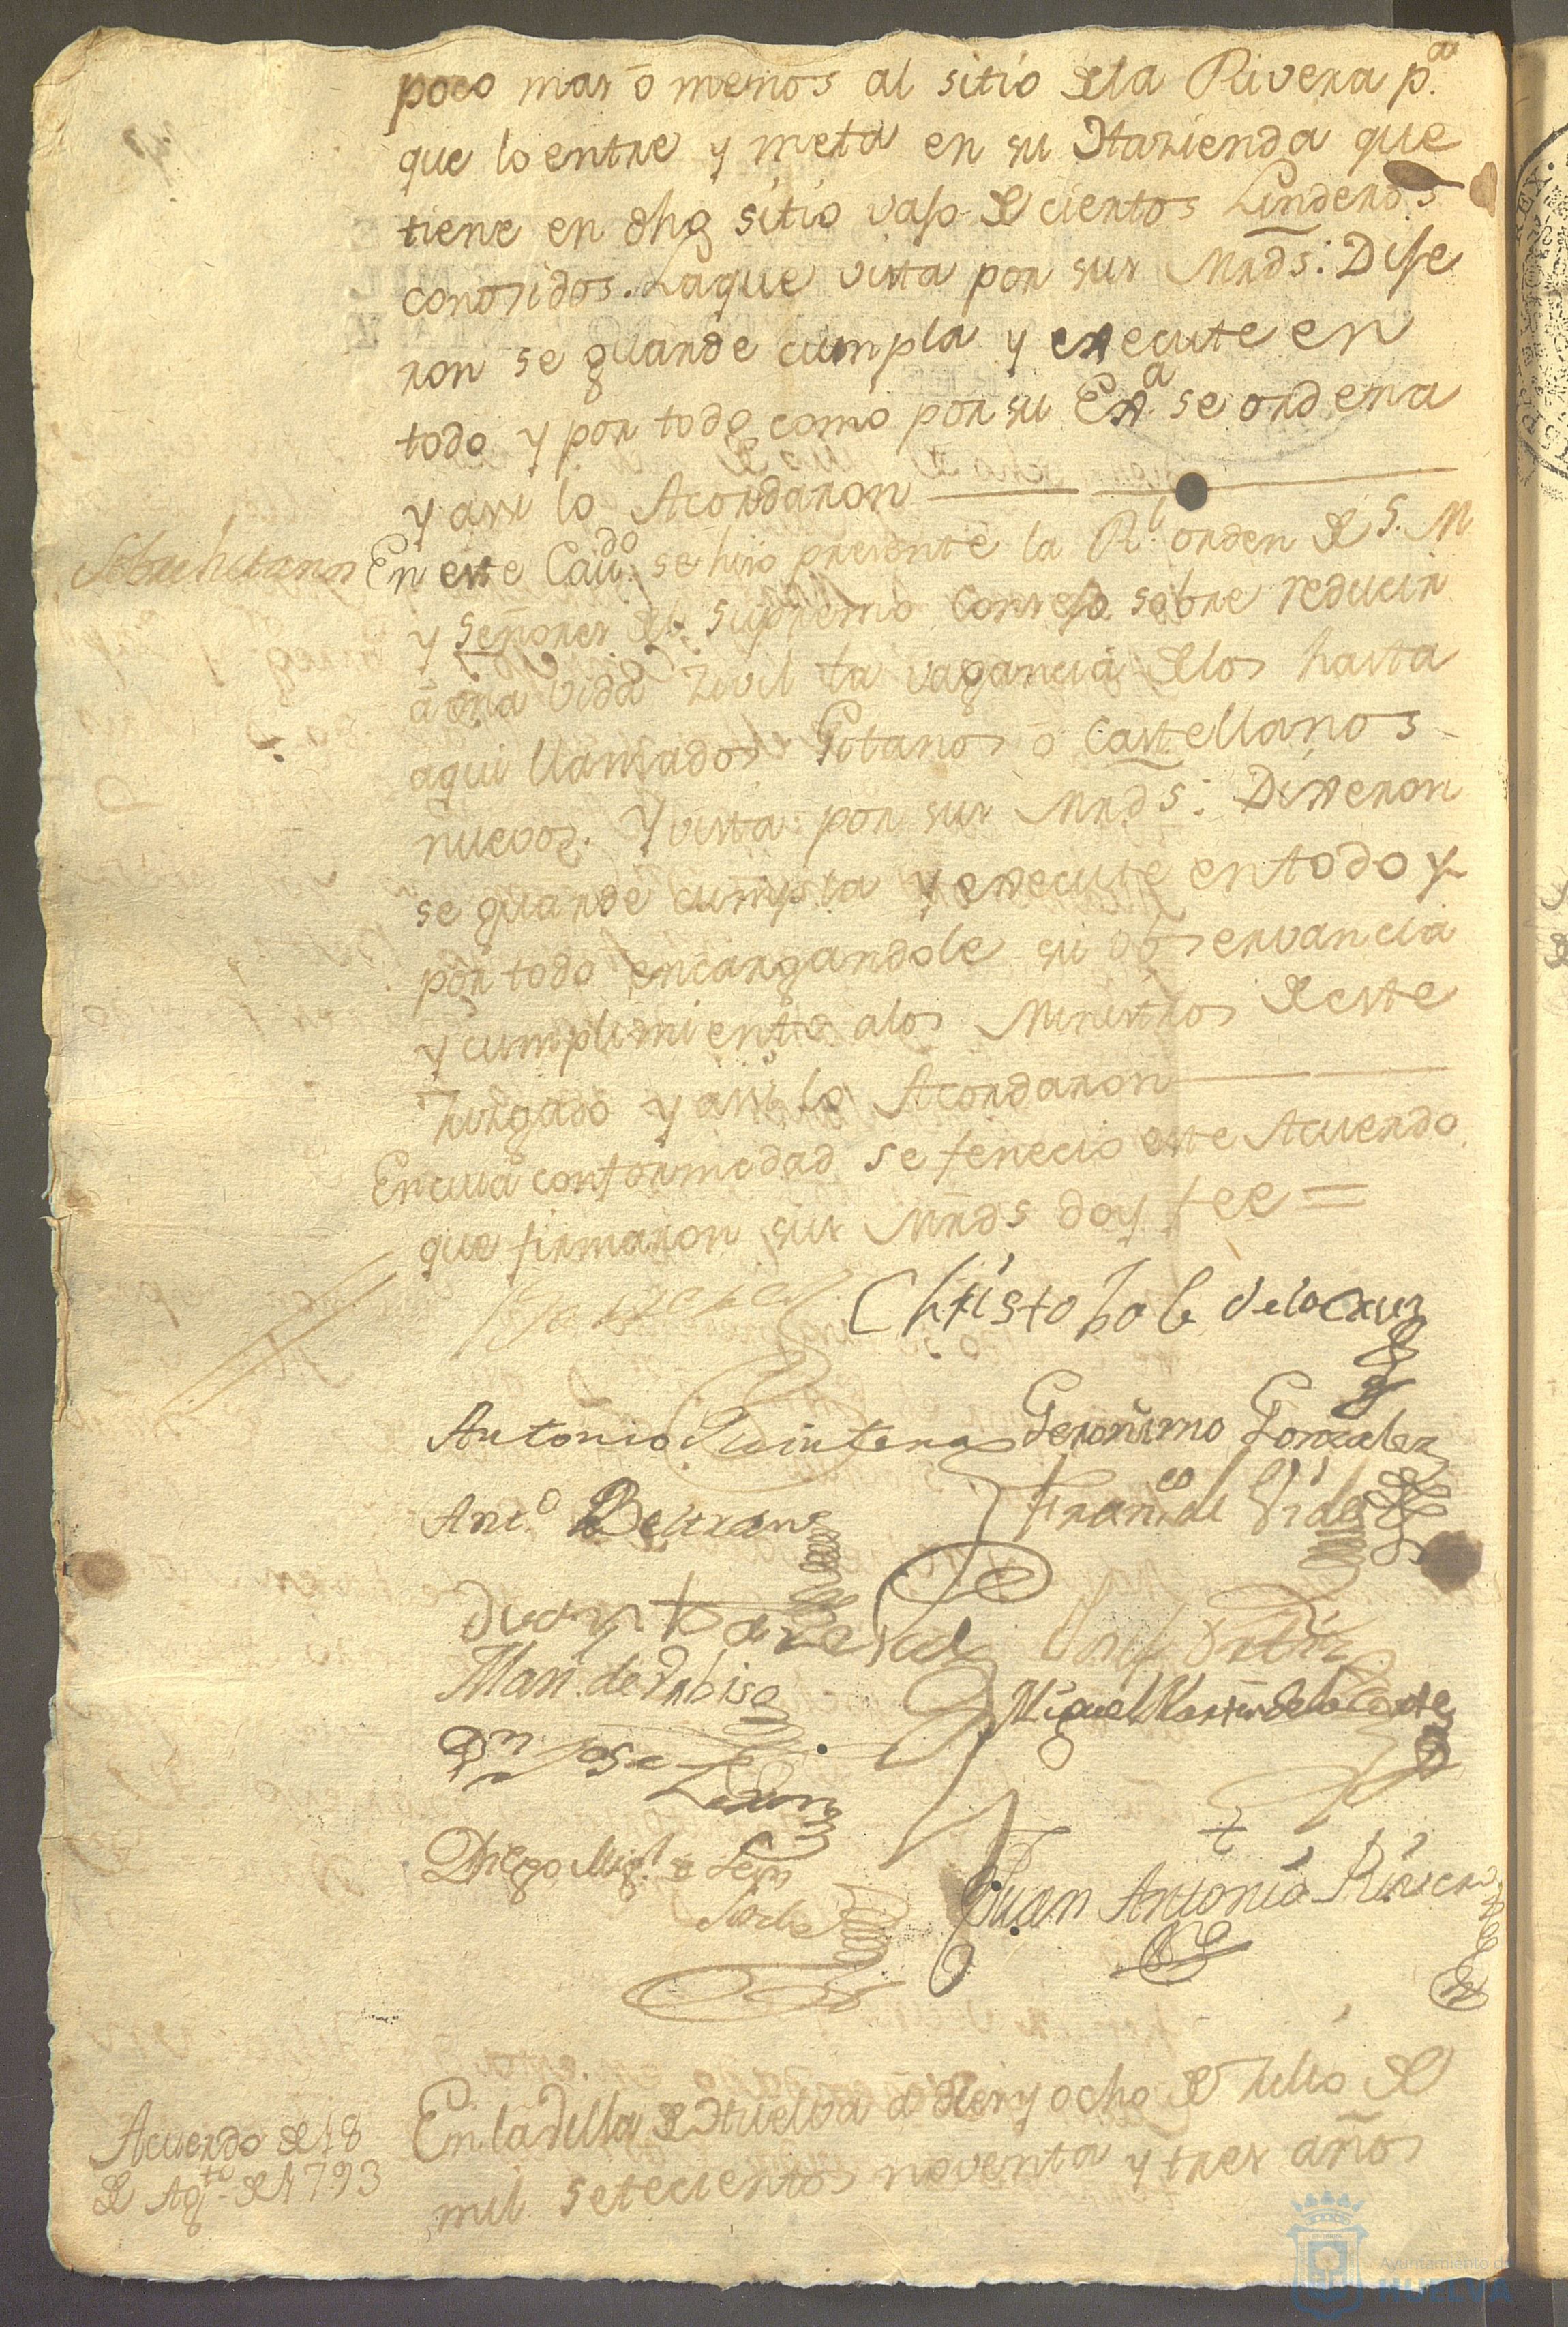 poco mas ō menos al sitio de la Rivera p.ª
que lo entre y meta en su Hazienda que
tiene en dho sitio vaso de ciertos Linderos
conosidos. La que vista por sus Mrds: Dixe
ron se guarde cumpla y execute en
todo y por todo como por su Exª se ordena
y assi lo Acordaron
Sobre hitanos
En este Cauᵈᵒ se hiso presente la Rˡ orden de S. M
y señores del Supremo Consejo sobre reducir
á una vida Zivil la vagancia de los hasta
aqui llamados Gitanos ō Castellanos
nuevos. Y vista por sus Mrds: Dixeron
se guarde cumpla y execute en todo y
por todo encargandole su observancia
y cumplimiento a los Ministros de este
Jusgado y assi lo Acordaron
En cuia conformidad se fenecio este Acuerdo
que firmaron sus Mrds doy fee =
Christobal de la Cruz
Antonio Quintero
Geronimo Gonzalez
Ant.º Beltran
Fran.ᶜᵒ de Vides
Josef Ortiz
Man. de
Miguel Martin de la Corte
Dⁿ Jose
Ledon
Diego Migˡ de Leon
Sorela
Juan Antonio Rivera
Acuerdo de 18
de Agᵗᵒ de 1793
En la Villa de Huelva a diez y ocho de Julio de
mil setecientos noventa y tres años
Ayuntamiento de
HUELVA